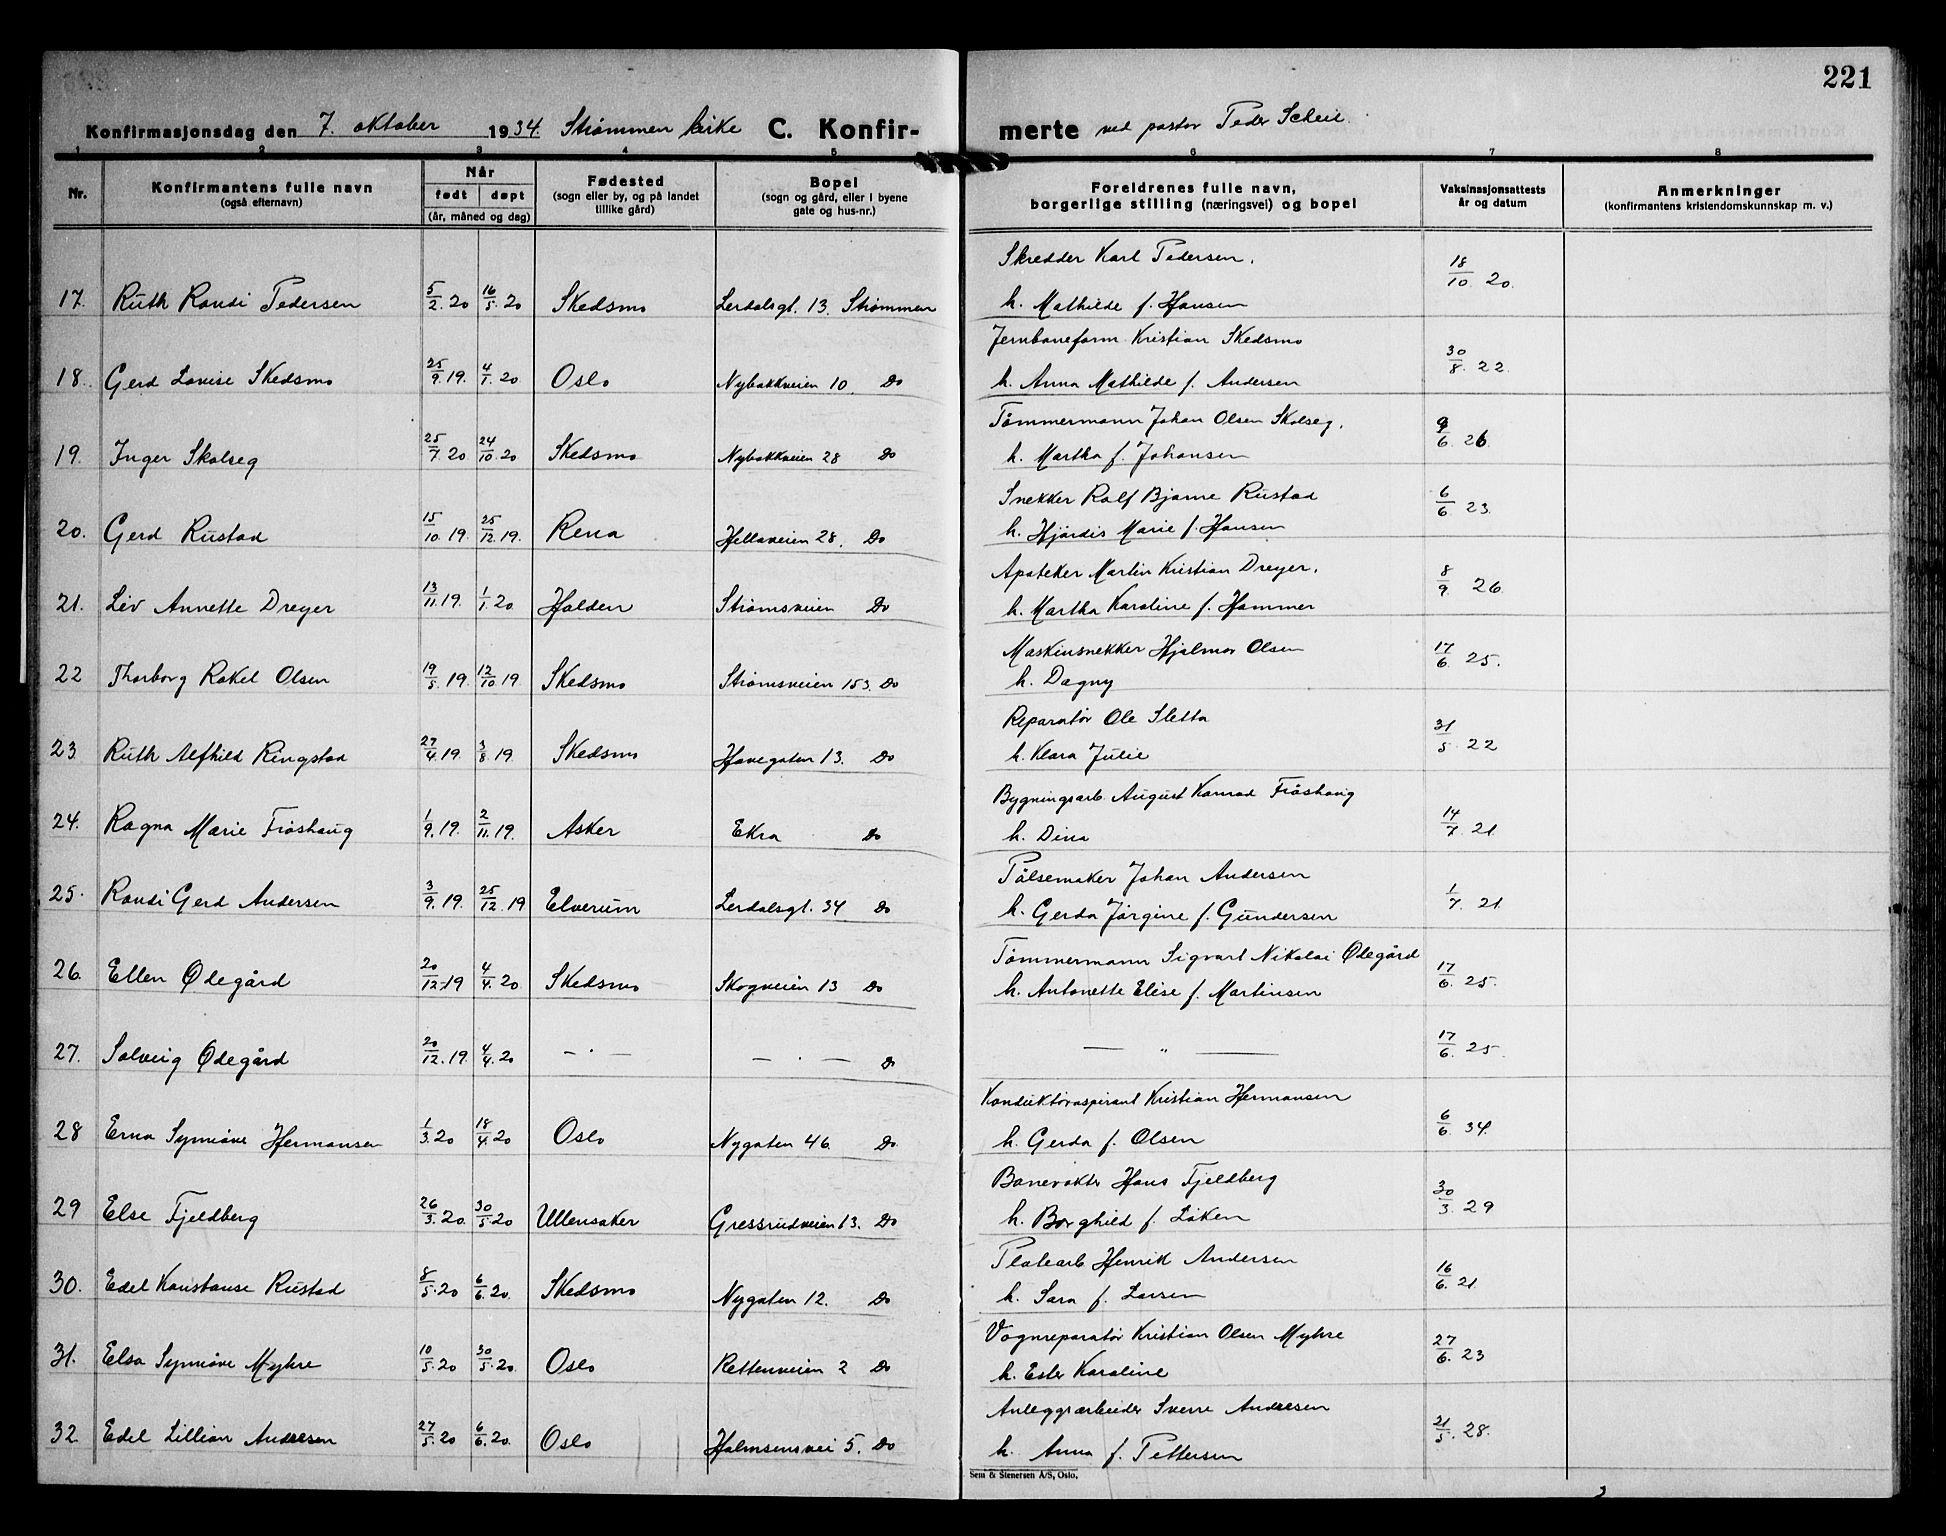 221
Konfirmasjonsdag den 7. oktober 1934. Strømmen kirke C. Konfir-merte ved pastor Peder Scheie.
1 2 3 4 5 6 7 8
Nr. Konfirmantens fulle navn (også efternavn) Når født døpt (år, måned og dag) Fødested (sogn eller by, og på landet tillike gård) Bopel (sogn og gård, eller i byene gate og hus-nr.) Foreldrenes fulle navn, borgerlige stilling (næringsvei) og bopel Vaksinasjonsattests år og datum Anmerkninger (konfirmantens kristendomskunnskap m. v.)
Skredder Karl Pedersen.
17. Ruth Randi Pedersen 5/2. 20 16/5. 20 Skedsmo Lerdalsgt. 13. Strømmen h. Mathilde f. Hansen 18/10. 20.
Jernbaneform. Kristian Skedsmo
18. Gerd Lovise Skedsmo 25/9. 19. 4/1. 20 Oslo Nybakkveien 10. Do h. Anna Mathilde f. Andersen 30/8. 22.
Tømmermann Johan Olsen Skolseg.
19. Inger Skolseg 25/7. 20 24/10. 20 Skedsmo Nybakkveien 28 Do h. Martha f. Johansen 9/6. 26
Snekker Ralf Bjarne Rustad
20. Gerd Rustad 15/10. 19. 25/12. 19. Rena Hellaveien 28. Do h. Hjørdis Marie f. Hansen 6/6. 23.
Apoteker Martin Kristian Dreyer.
21. Liv Annette Dreyer 13/11. 19. 1/1. 20 Halden Strømsveien Do h. Martha Karoline f. Hammer 8/9 26
Maskinsnekker Hjalmar Olsen
22 Thorborg Rakel Olsen 19/5. 19. 12/10. 19. Skedsmo Strømsveien 153. Do h. Dagny 17/6. 25.
Reparatør Ole Sletta
23. Ruth Alfhild Ringstad 27/4. 19. 3/8. 19. Skedsmo Havegaten 13. Do h. Klara Julie 31/5. 22
Bygningsarb. August Konrad Frøshaug
24. Ragna Marie Frøshaug 1/9. 19. 2/11. 19. Asker Ekra Do h. Dina 14/7. 21.
Pølsemaker Johan Andersen
25. Randi Gerd Andersen 3/9. 19. 25/12. 19 Elverum Lerdalsgt. 34 Do h. Gerda Jørgine f. Gundersen 1/7. 21.
Tømmermann Sigvart Nikolai Ødegård
26. Ellen Ødegård 20/12. 19 4/4. 20 Skedsmo Skogveien 13 Do h. Antonette Elise f. Martinsen 17/6. 25.
27. Solveig Ødegård 20/12. 19. 4/4. 20 — · — — · — Do — " — 17/6. 25.
Konduktøraspirant Kristian Hermansen
28 Erna Synnøve Hermansen 1/3. 20 18/4. 20 Oslo Nygaten 46. Do h. Gerda f. Olsen 6/6. 34.
Banevokter Hans Fjeldberg
29 Else Fjeldberg 26/3. 20. 30/5. 20 Ullensaker Gressrudveien 13. Do h. Borghild f. Løken 30/3. 29
Platearb. Henrik Andersen
30. Edel Konstanse Rustad 8/5. 20 6/6. 20. Skedsmo Nygaten 12. Do h. Sara f. Larsen 16/6. 21
Vognreparatør Kristian Olsen Myhre
31. Elsa Synnøve Myhre 10/5. 20 30/5. 20. Oslo Rettenveien 2 Do h. Ester Karoline 27/6. 23
Anleggsarbeider Sverre Andresen
32. Edel Lillian Andresen 27/5. 20 6/6. 20. Oslo Holmsensvei 5. Do h. Anna f. Pettersen 21/5. 28.
Sem & Stenersen A/S, Oslo.